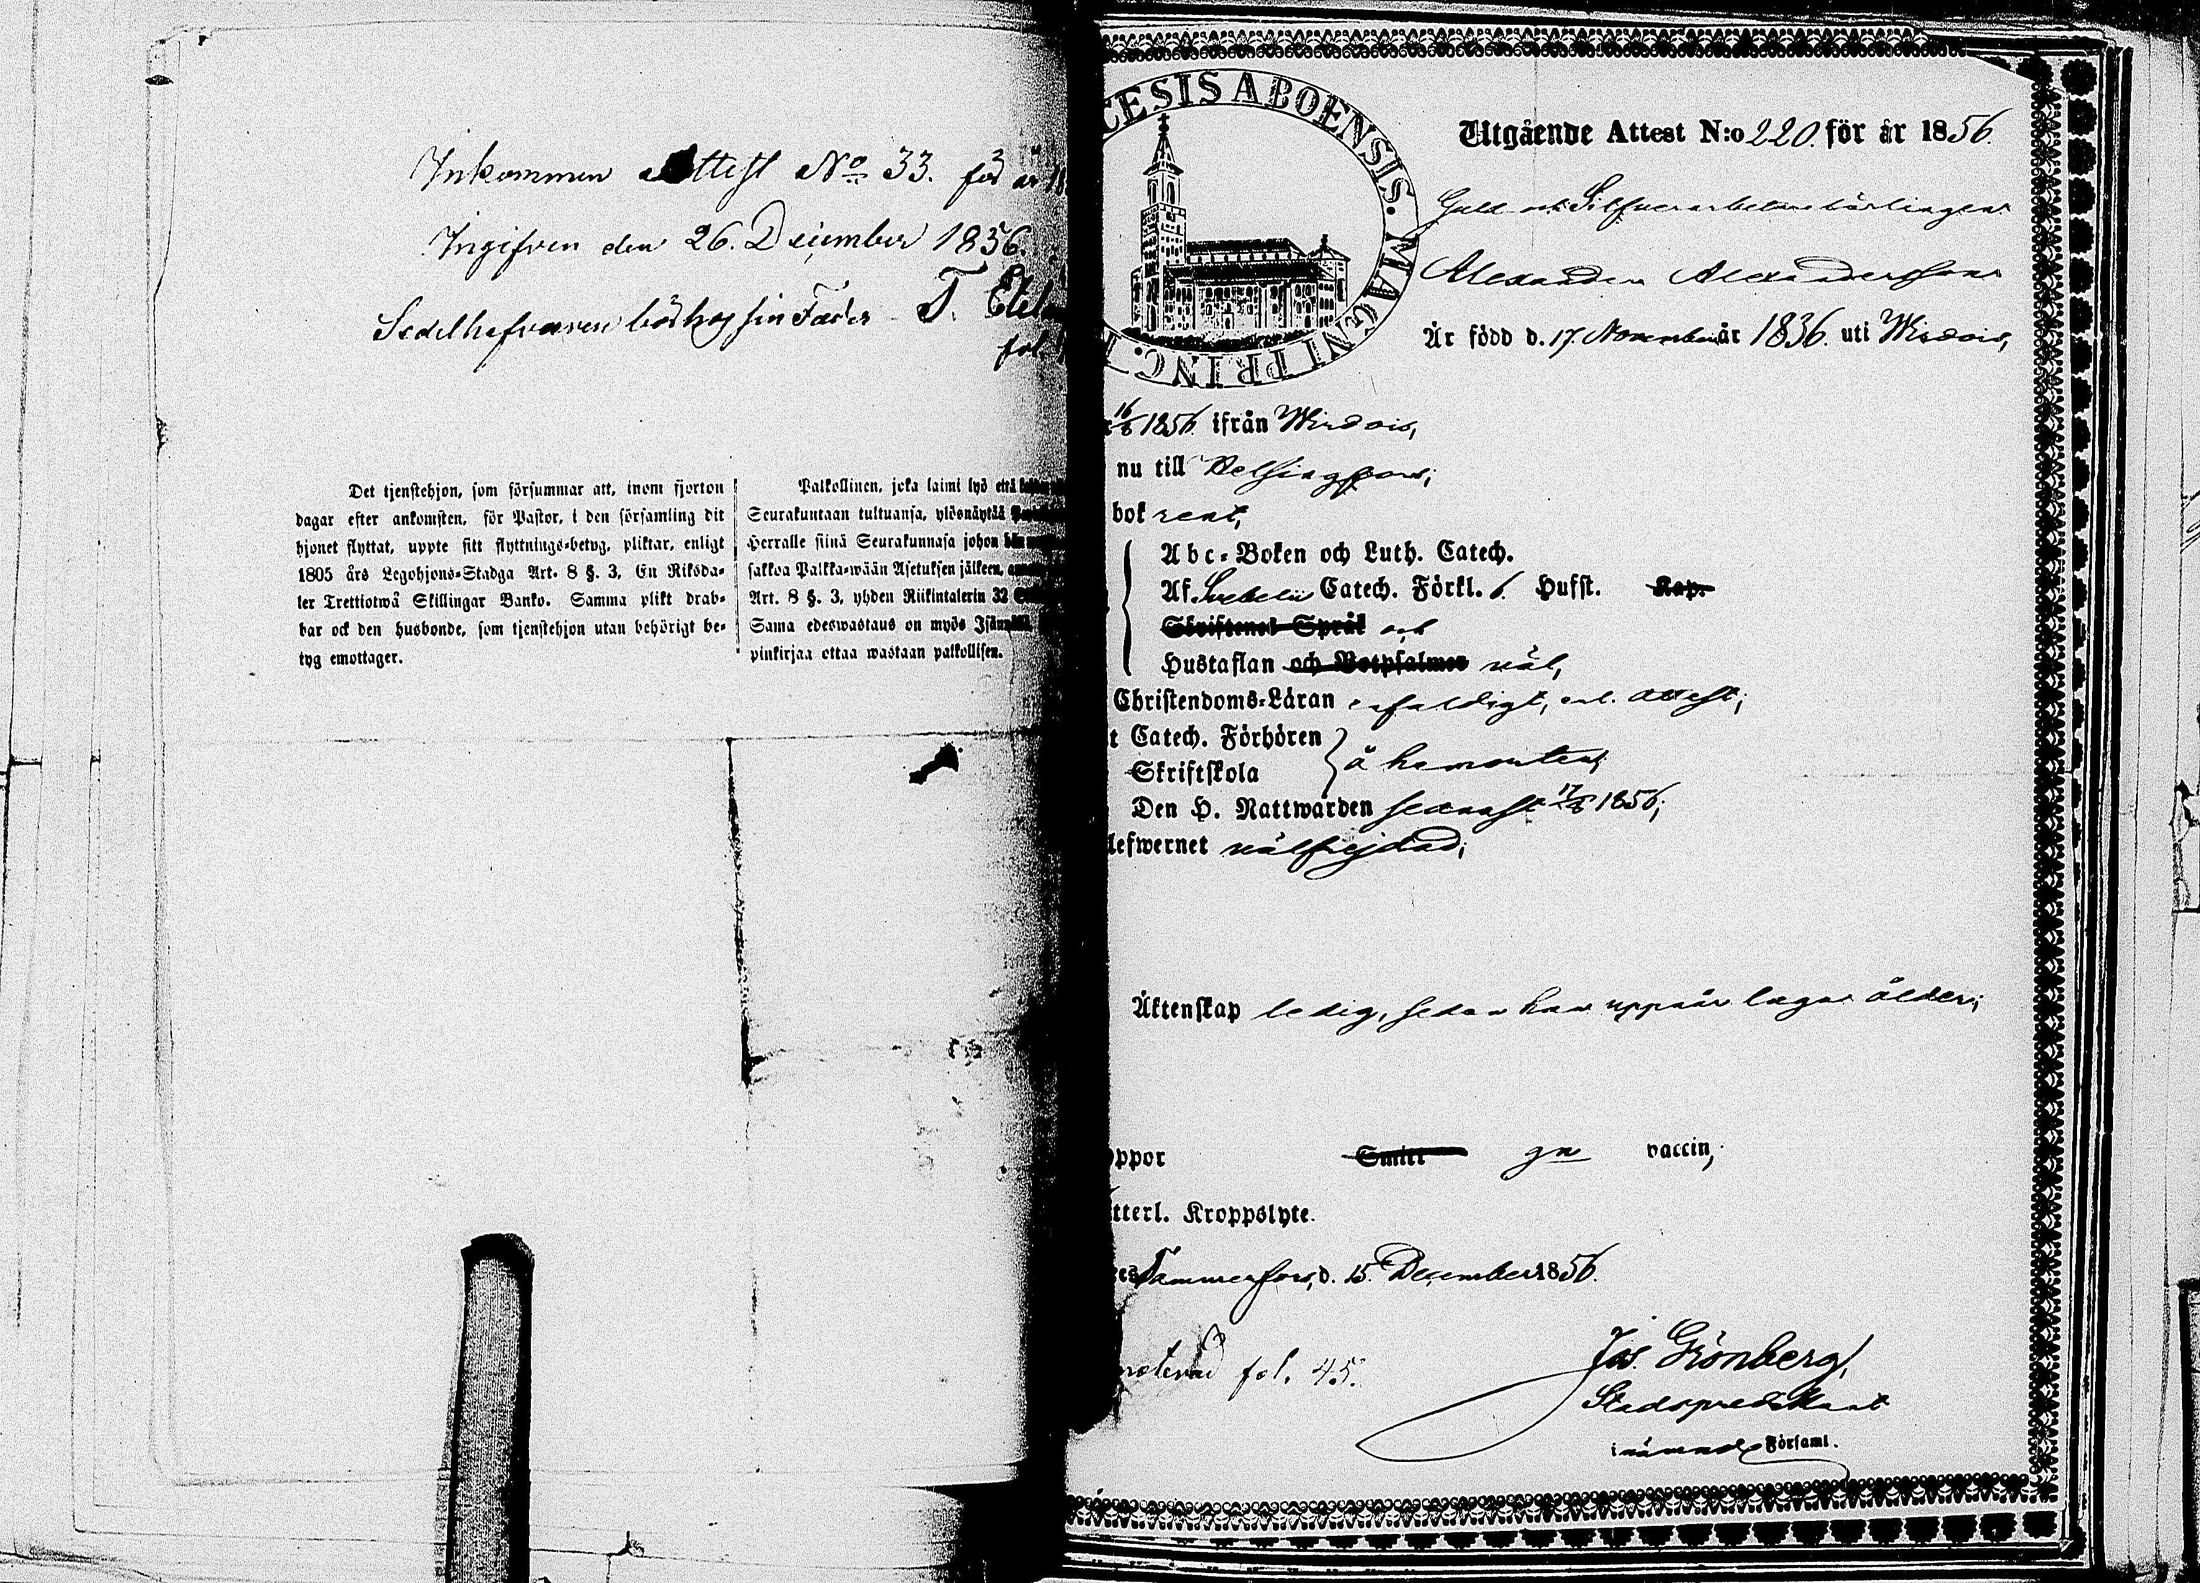 Inkommen Attest No 33. för år 18
Ingifven den 26. December 1856.
Sedelhafvaren hos sin Fader T.
fol
Det tjenstehjon, som försummar att, inom fjorton
dagar efter ankomsten, för Pastor, i den församling dit
hjonet flyttat, uppte sitt flyttnings-betyg, pliktar, enligt
1805 års Legohjons-Stadga Art. 8 §. 3, En Riksda-
ler Trettiotwå Skillingar Banko. Samma plikt drab-
bar ock den husbonde, som tjenstehjon utan behörigt be-
tyg emottager.
Palkollinen, joka laimi lyö että
Seurakuntaan tultuansa, ylösnäytää
Herralle siinä Seurakunnasa johon
sakkoa Palkka-wään Asetuksen jälkeen,
Art. 8 §. 3, yhden Riikintalerin 32
Sama edeswastaus on myös
pinkirjaa ottaa wastaan palkollisen.
CESIS ABOENSIS. MAGNI PRINC.
Utgående Attest N:o 220. för år 1856.
Guld och Silfverarbetare lärlingen
Alexander Alexandersson
Är född d. 17. November år 1836. uti Wirdois,
16/8 1856. ifrån Wirdois,
nu till Helsingfors;
bok rent,
Abc-Boken och Luth. Catech.
Af Svebelii Catech. Förkl. 6. Hufst. Kap.
Skriftenes Språk och
Hustaflan och Botpsalmer väl,
Christendoms-Läran enfaldigt, enl. attest;
t Catech. Förhören
Skriftskola
å hemorten,
Den H. Nattwarden senast 17/8 1856;
lefwernet välfrejdad;
Äktenskap ledig, sedan han uppnår laga ålder;
oppor Smitt gn vaccin;
tterl. Kroppslyte.
Tammerfors, d. 15. December 1856.
noterad fol. 45.
Jos. Grönberg,
Stadspredikant
i nämnde Församl.